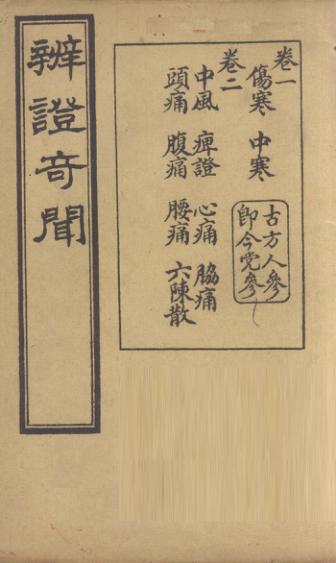 卷一
傷寒　中寒
古方人參
即今党參
卷二
中風　痺證　心痛　脇痛
頭痛　腹痛　腰痛　六陳散
辨證奇聞